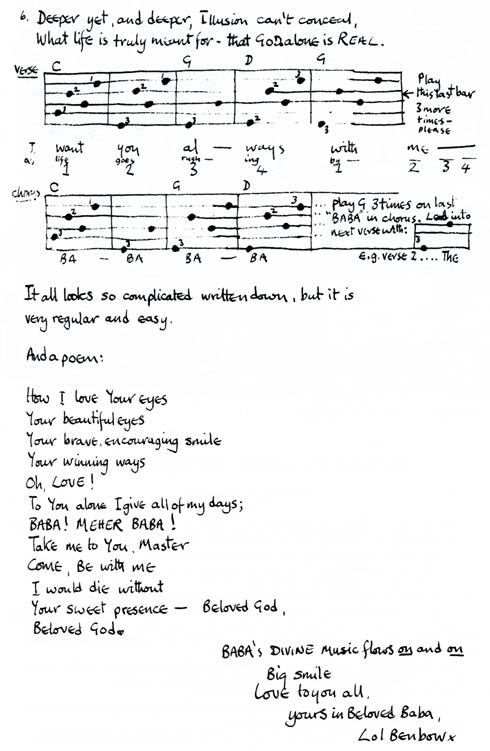 6. Deeper yet, and deeper, Illusion can't conceal,
What life is truly meant for - that GOD alone is REAL.
VERSE C G D G
Play this last bar 3 more times - please
I want you al — ways with me —
a: life goes rush — ing by —
1 2 3 4 1 2 3 4
chorus C G D
... play G 3 times on last
"BABA" in chorus. Lead into
next verse with:
BA — BA BA — BA
E.g. verse 2 .... The
It all looks so complicated written down, but it is
very regular and easy.
And a poem:
How I love Your eyes
Your beautiful eyes
Your brave, encouraging smile
Your winning ways
Oh, LOVE!
To You alone I give all of my days;
BABA! MEHER BABA!
Take me to You, Master
Come, Be with me
I would die without
Your sweet presence — Beloved God,
Beloved God.
BABA's DIVINE Music flows on and on
Big smile
Love to you all,
yours in Beloved Baba,
Lol Benbow x